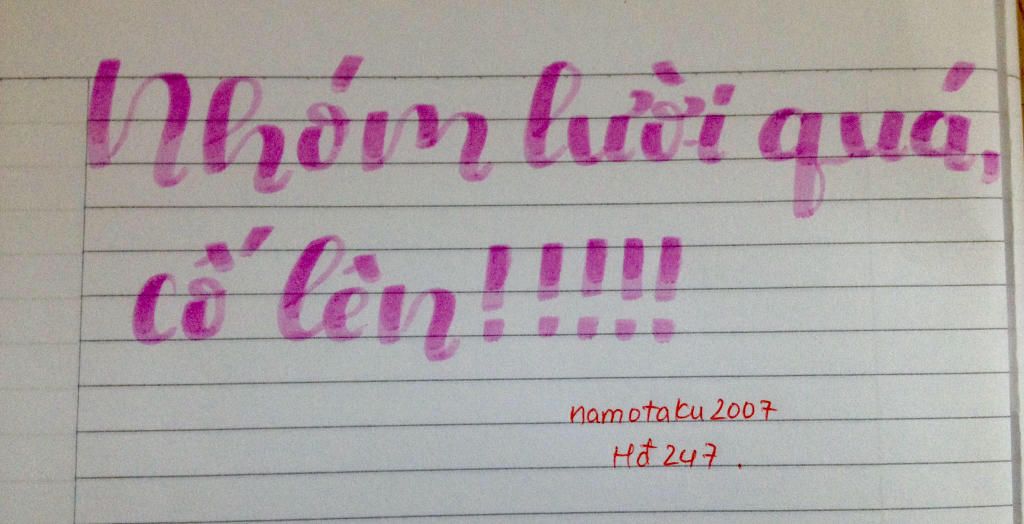 Nhóm lười quá,
cố lèn!!!!!
namotaku2007
Hđ 247.